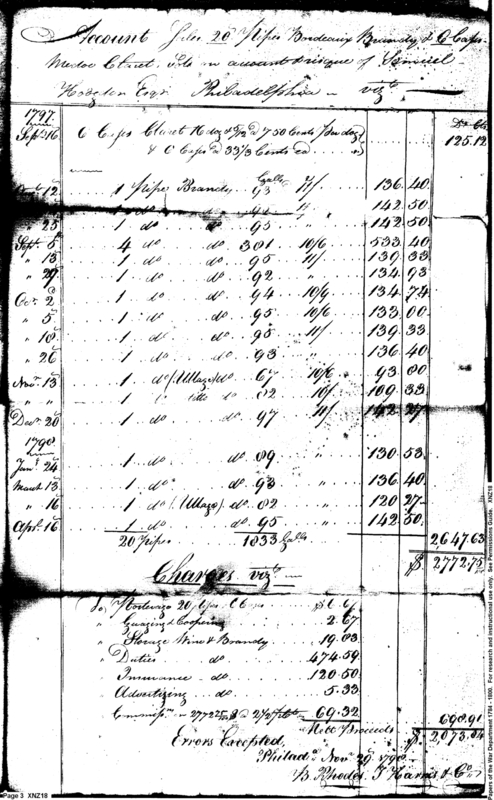 Account Sales 20 Pipes Bordeaux Brandy & 6 Casks
Medoc Claret, sold on account & risque of Samuel
Hodgdon Esqr. Philadelphia — vizt —
1797 Drs Cts
Sept. 16 6 Casks Claret 16 doz & 8/12 @ 7 50 Cents per doz
& 6 Casks @ 33 1/3 Cents ea 125.12
12 1 Pipe Brandy Galls 93 11/ 136.40
1 do do 142.50
" 25 1 do do 95 " 142.50
Sept. 5 4 do do 381 10/6 533.40
" 13 1 do do 95 11/ 139.33
" 29 1 do do 92 " 134.93
Octr. 2 1 do do 94 134.74
" 5 1 do do 95 10/6 133.00
" 18 1 do do 95 11/ 139.33
" 26 1 do do 93 " 136.40
Novr. 13 1 do (Ullage) do 67 10/6 93.80
" " 1 do 82 109.33
Decr. 20 1 do do 97 11/ 142.27
1798
Jany. 24 1 do do 89 " 130.53
March 13 1 do do 93 " 136.40
" 16 1 do (Ullage) do 82 " 120.27
April 16 1 do do 95 " 142.50
20 Pipes 1833 Galls 2647.63
$ 2772.75
Charges vizt —
" Gauging & Coopering 2.67
" Storage Wine & Brandy 19.83
" Duties do 474.59
" Insurance do 120.50
" Advertizing do 5.33
" Commissn. on 2772 @ 2 1/2 69.32 698.91
Nee Proceeds $ 2073.84
Errors Excepted,
Philada. Novr. 29 1798
B Rhodes, T Harris & Co.
Page 3 XNZ18
Papers of the War Department 1784 - 1800. For research and instructional use only. See Permissions Guide. XNZ18